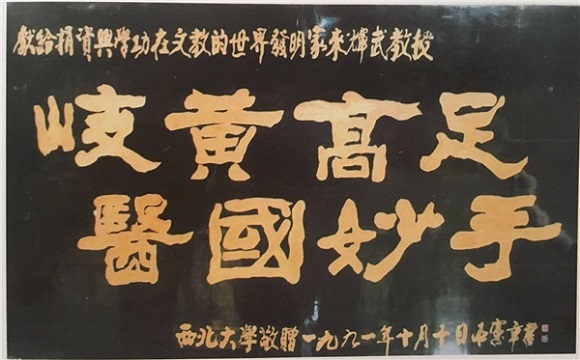 獻給捐資興學功在文教的世界發明家來輝武教授
岐黃高足
醫國妙手
西北大學敬贈一九九一年十月十日石憲章書